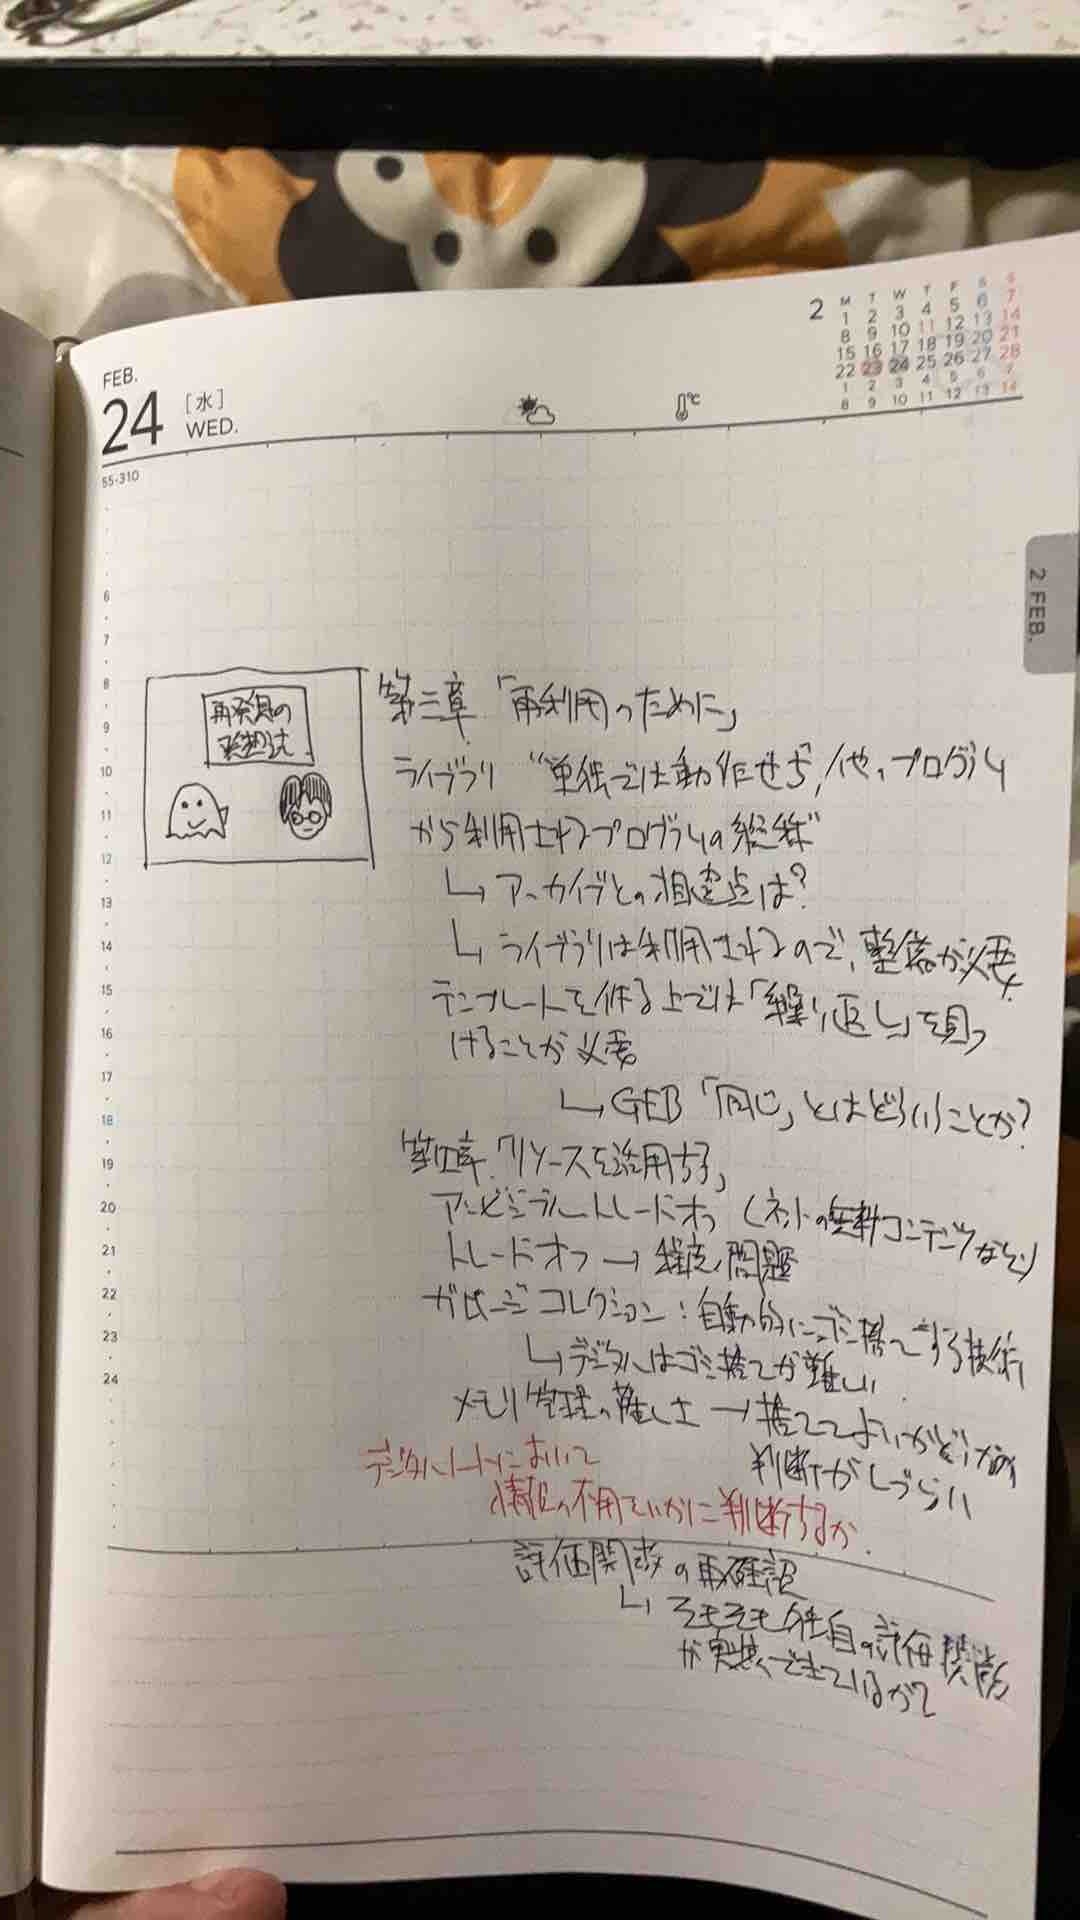 2
M T W T F S S
1 2 3 4 5 6 7
8 9 10 11 12 13 14
15 16 17 18 19 20 21
22 23 24 25 26 27 28
1 2 3 4 5 6 7
8 9 10 11 12 13 14
FEB.
24 [水]
WED.
℃
55-310
2 FEB.
6
7
8
9
10
11
12
13
14
15
16
17
18
19
20
21
22
23
24
再発見の
発想法
第三章「再利用のために」
ライブラリ “単独では動作せず、他のプログラム
から利用されるプログラムの総称”
↳アーカイブとの相違点は?
↳ライブラリは利用されるので、整備が必要
テンプレートを作る上では「繰り返し」を見つ
けることが必要
↳GEB「同じ」とはどういうことか?
第四章「リソースを活用する」
トレードオフ (ネットの無料コンテンツなど)
トレードオフ→ 問題
ガベージコレクション:自動的にゴミ捨てする技術
↳デジタルはゴミ捨てが難しい
メモリ管理の難しさ→捨ててよいかどうかの
判断がしづらい
デジタルノートにおいて
情報の不用さをいかに判断するか
評価関数の再確認
↳そもそも独自の評価関数
が実装できているか?